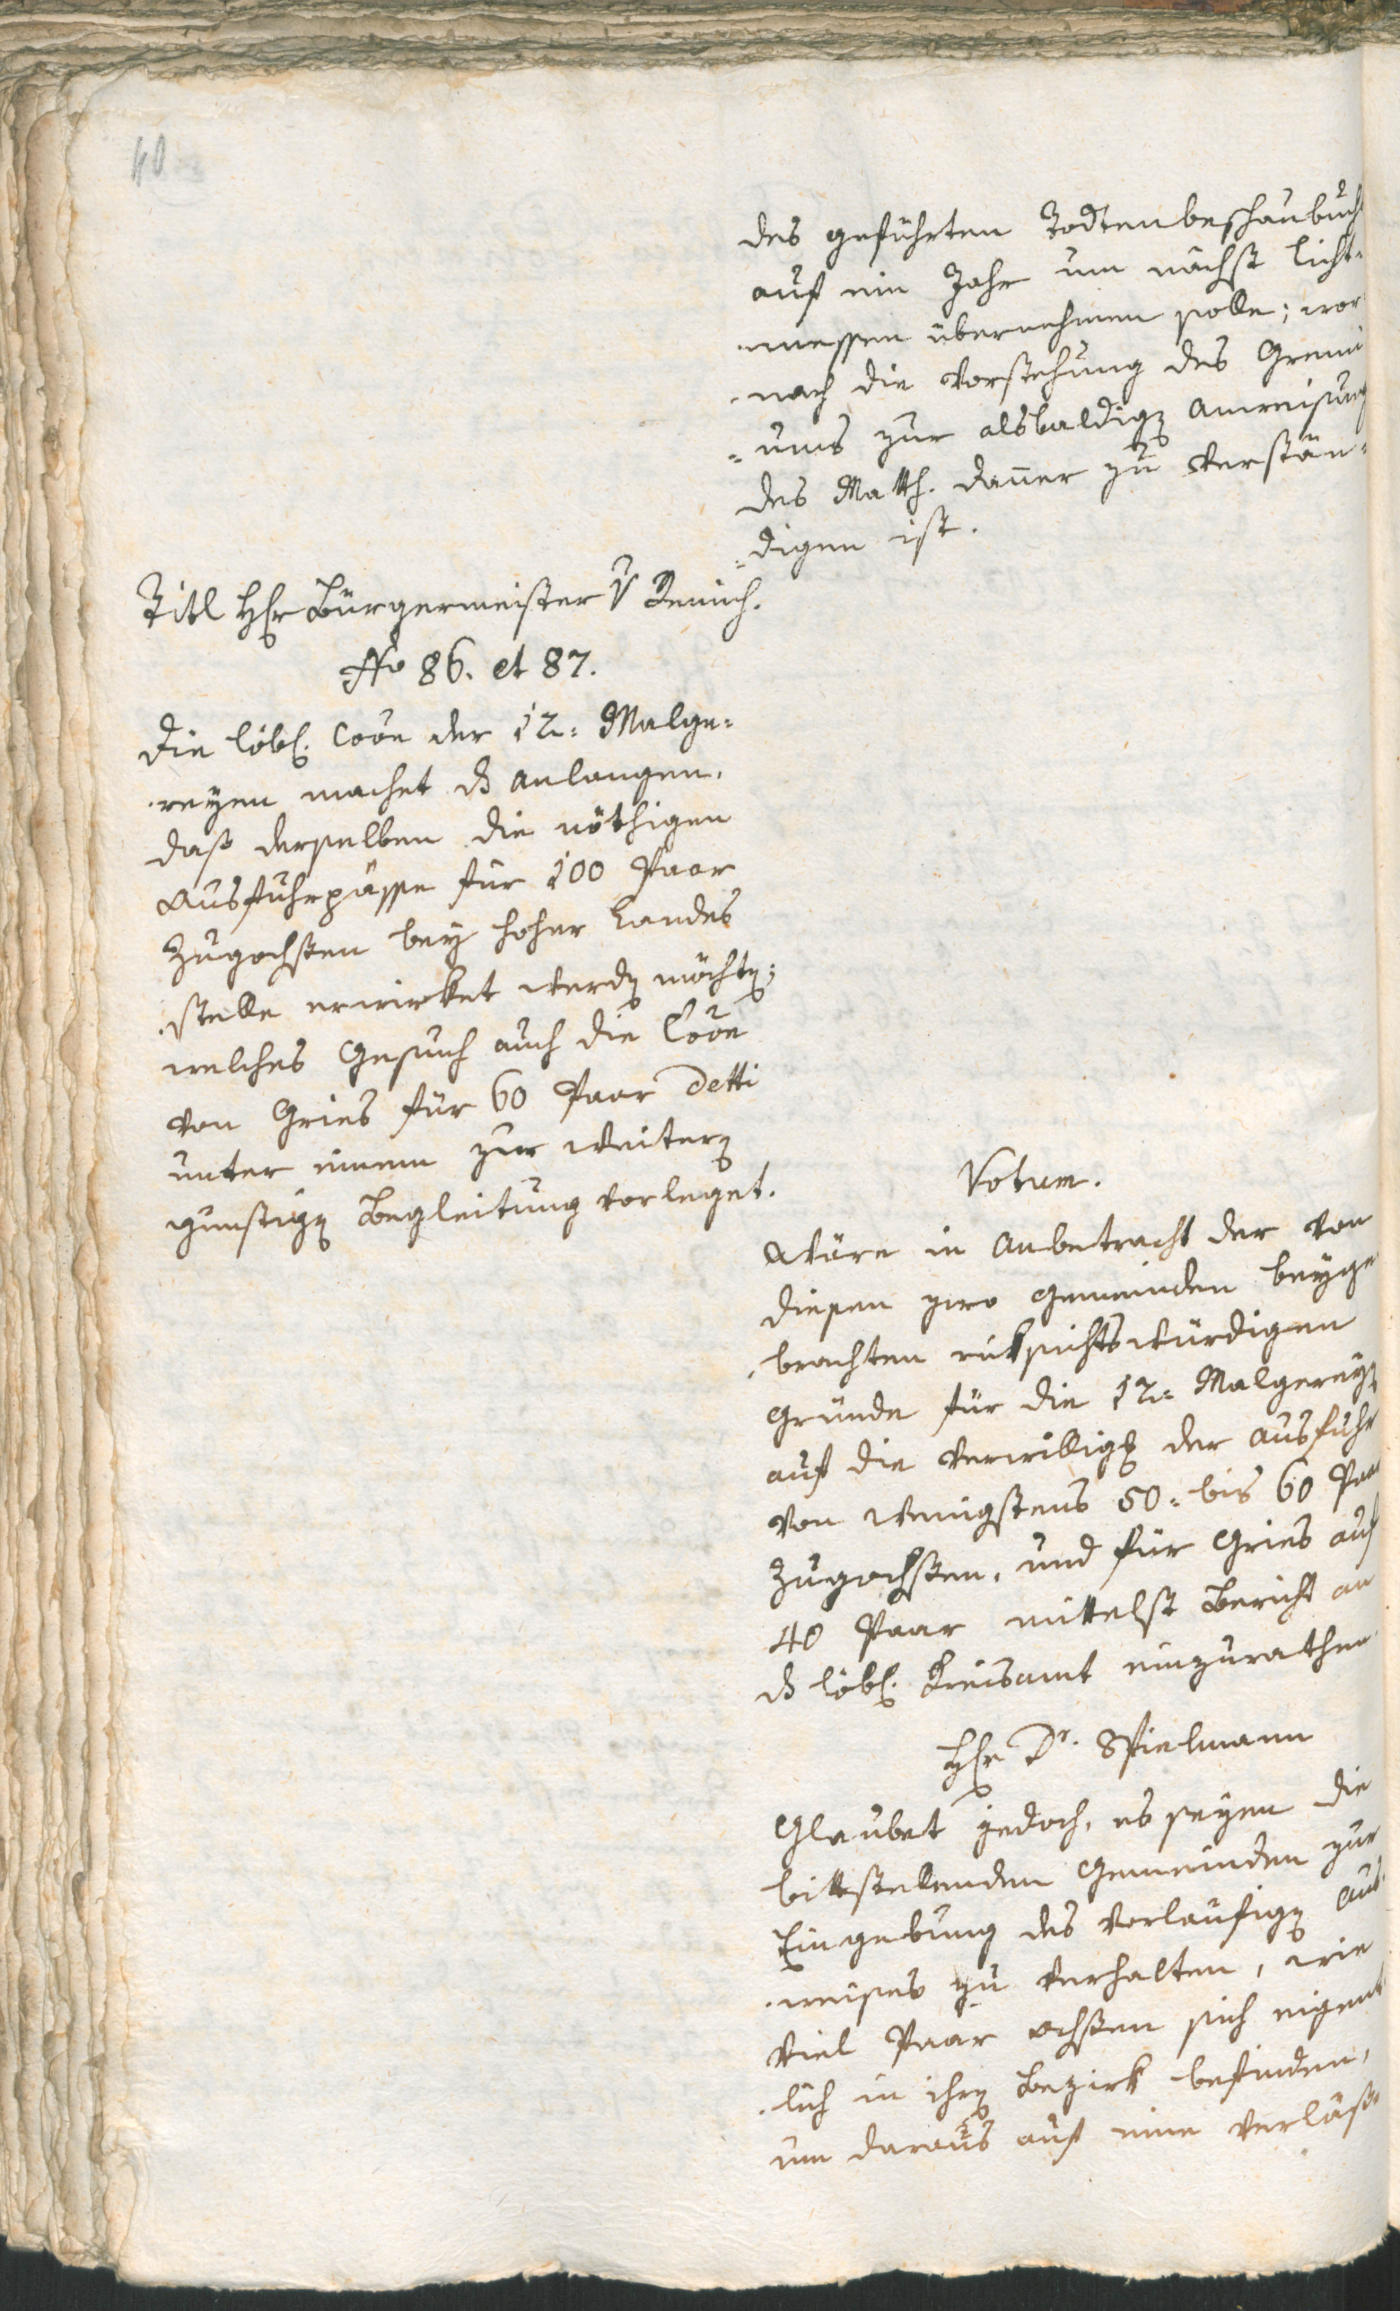 40
des geführten Todtenbeschaubuchs
auf ein Jahr um nächst Licht-
messen übernehmen solle; wor-
nach die Vorstehung des Gremi
=ums zur alsbaldigen Anweisung
des Matth. Danner zu verstän=
=digen ist.
Titl Hr Bürgermeister v Remich.
No 86. et 87.
Die löbl. Coon der 12. Malge=
reyen machet das Anlangen,
daß derselben die nöthigen
Ausfuhrpässe für 100 Paar
Zugochsen bey hoher Landes
stelle erwirket werden möchten;
welches Gesuch auch die Coon
von Gries für 60 Paar detti
unter einem zur weitern
günstigen Begleitung vorleget.
Votum.
Wäre in Anbetracht der von
diesen zwo Gemeinden beyge
brachten rüksichtswürdigen
Gründe für die 12. Malgereyen
auf die Verwilligung der Ausfuhr
von wenigstens 50. bis 60 Paar
Zugochsen, und für Gries auf
40 Paar mittelst Bericht an
das löbl. Kreisamt einzurathen.
Hr Dr. Spielmann
Glaubet jedoch, es seyen die
bittstellenden Gemeinden zur
Eingebung des vorläufigen Aus
weises zu verhalten, wie
viel Paar Ochsen sich eigent
lich in ihren Bezirk befinden,
um daraus auf eine verläß